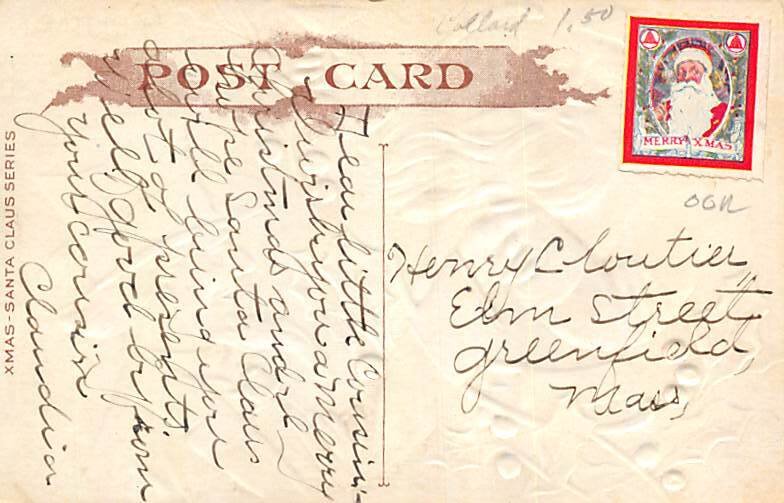 Collard 1.50
POST CARD
MERRY X MAS
OGN
XMAS - SANTA CLAUS SERIES
Dear little Cousin:-
I wish you a Merry
Christmas and I
hope Santa Claus
will bring you
lot of presents.
well good by from
your cousin
Claudia
Henry Cloutier,
Elm Street
Greenfield,
Mass,